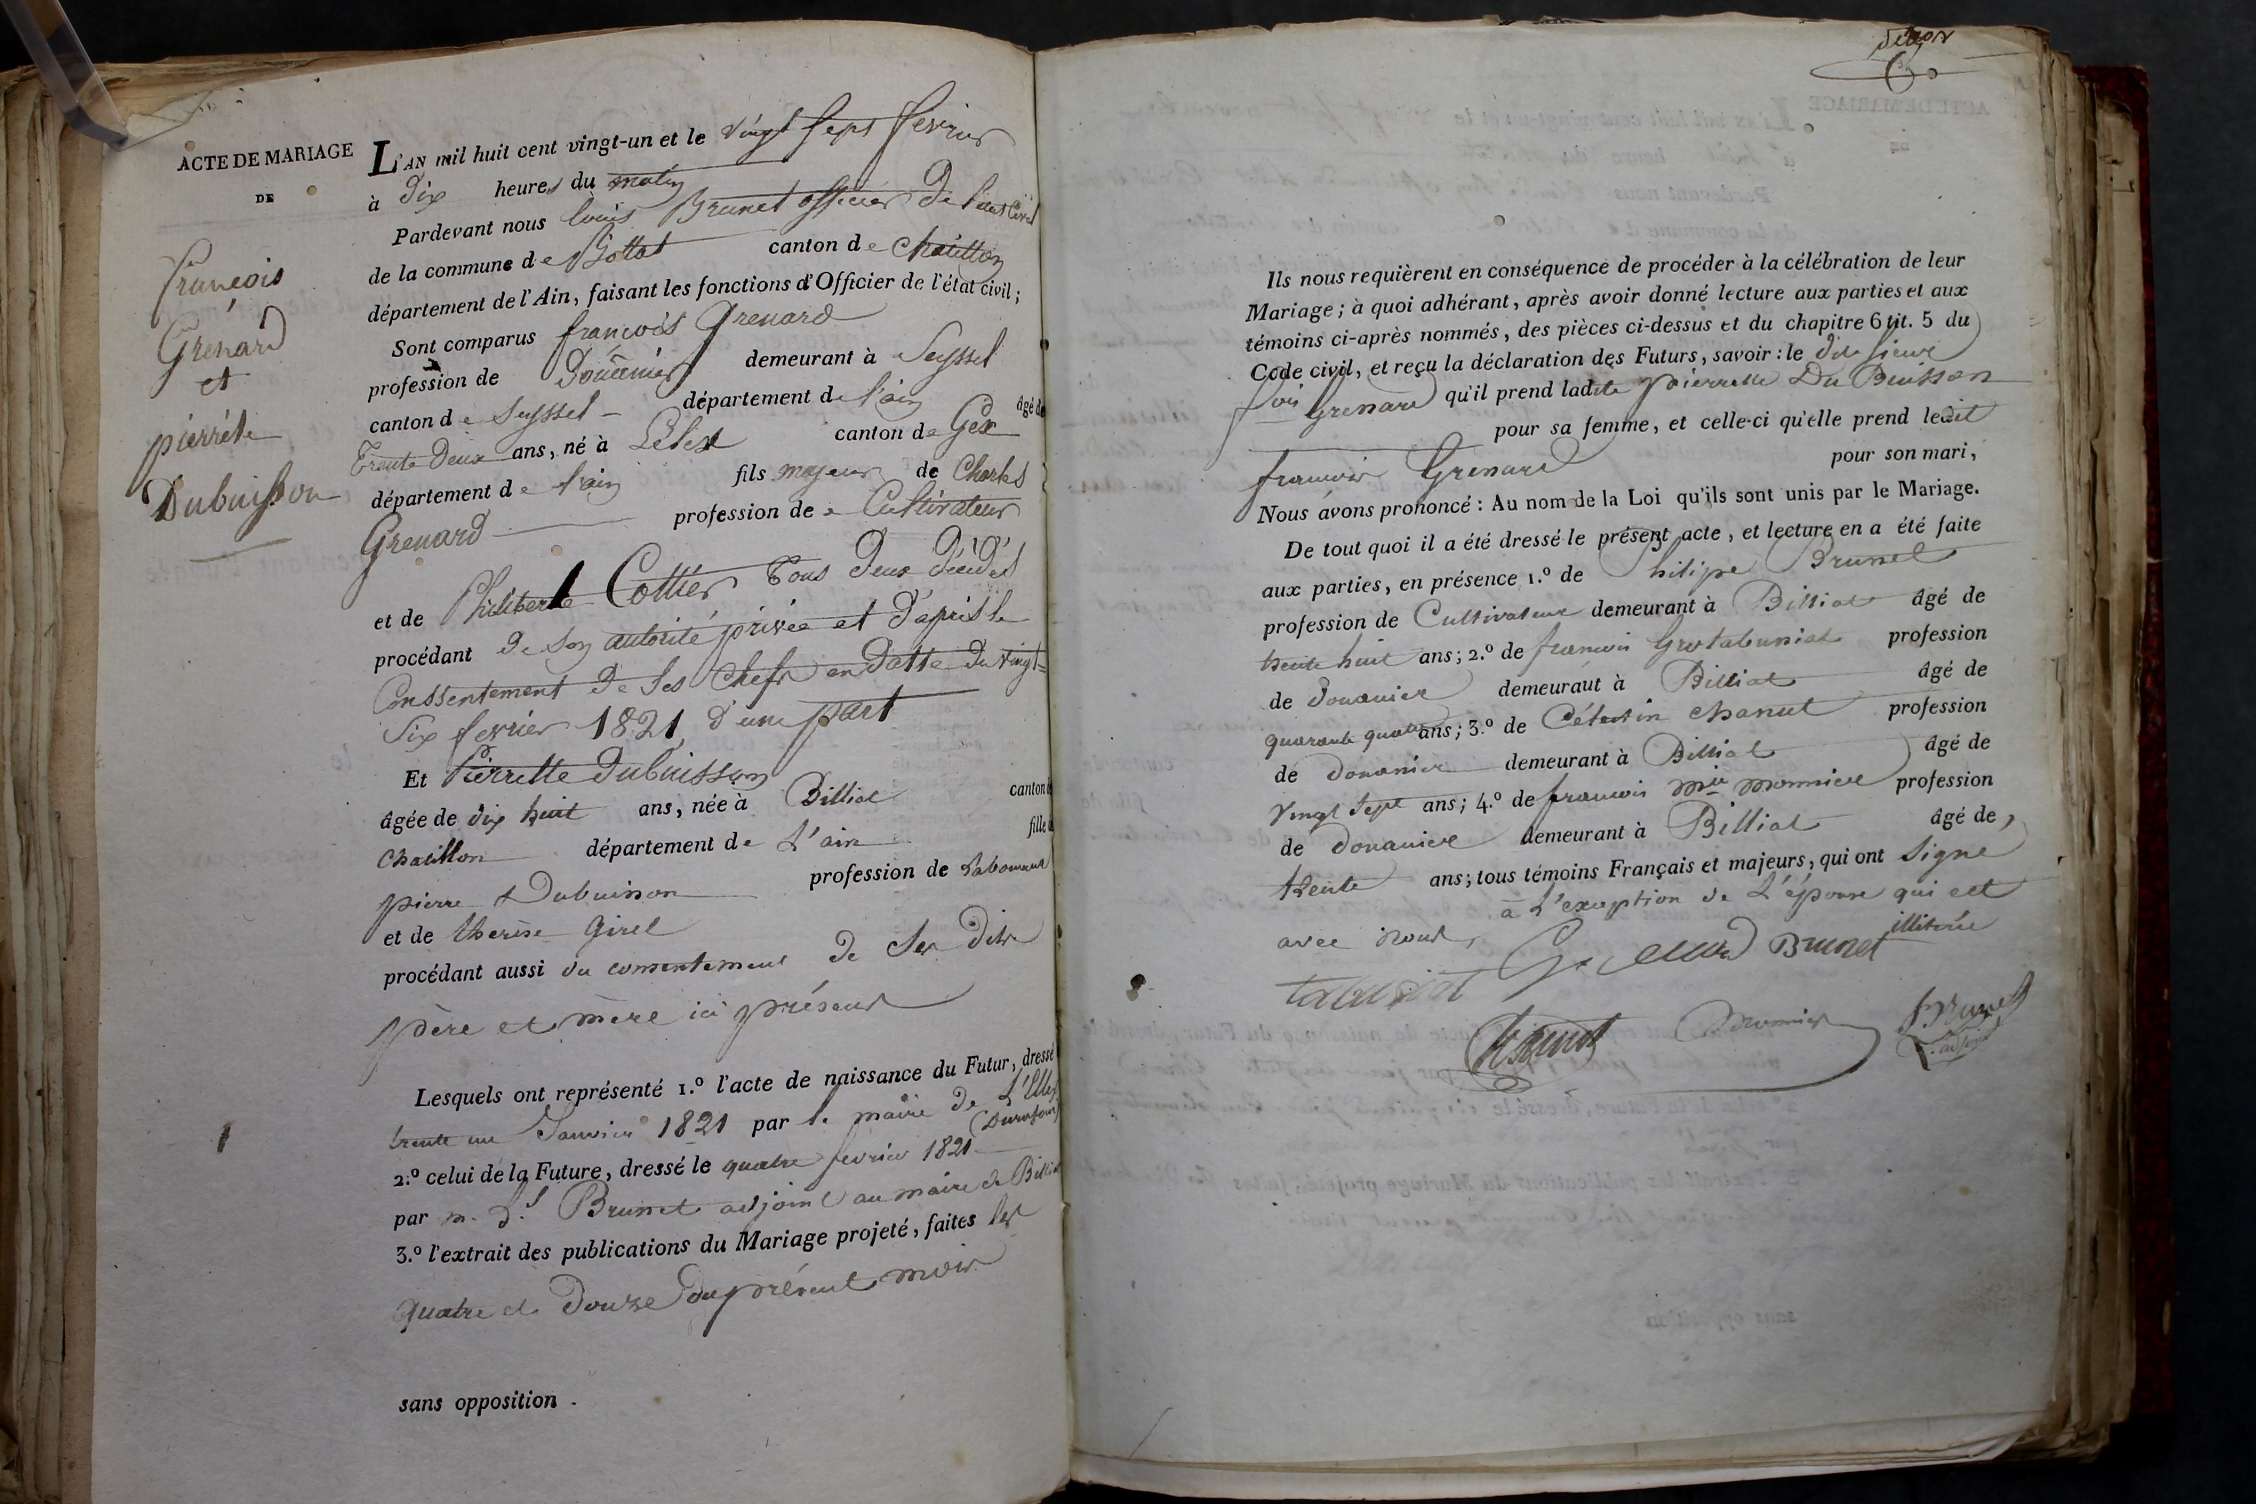 ACTE DE MARIAGE
DE
François
Grenard
et
pierréte
Dubuisson
L'AN mil huit cent vingt-un et le vingt sept fevrier
à dix heures du matin
Pardevant nous louis Brunet officier de l'état Civil
de la commune de Billiat canton de chatillon
département de l'Ain, faisant les fonctions d'Officier de l'état civil;
Sont comparus françois Grenard
profession de Douânier demeurant à Seyssel
canton de Seyssel département de l'ain âgé de
Trente Deux ans, né à Lélex canton de Gex
département de l'ain fils majeur de Charles
Grenard profession de Cultivateur
et de Philiberte Cottier Tous deux décédés
procédant de son autorité privée et d'après le
Conssentement de ses Chefs en datte du vingt-
Six fevrier 1821, d'une part
Et Pierrette Dubuisson
âgée de dix huit ans, née à Billiat canton de
chatillon département de L'ain fille de
pierre Dubuisson profession de Laboureur
et de therèse Girel
procédant aussi du consentement de Ses dits
père et mère ici présents
Lesquels ont représenté 1.º l'acte de naissance du Futur, dressé
trente un Janvier 1821 par le maire de L'Ellex
2.º celui de la Future, dressé le quatre fevrier 1821
par m. Brunet adjoint au maire de Billiat
3.º l'extrait des publications du Mariage projeté, faites les
quatre et Douze du présent mois
sans opposition.
Ils nous requièrent en conséquence de procéder à la célébration de leur
Mariage; à quoi adhérant, après avoir donné lecture aux parties et aux
témoins ci-après nommés, des pièces ci-dessus et du chapitre 6 tit. 5 du
Code civil, et reçu la déclaration des Futurs, savoir: le dit sieur
fois Grenard qu'il prend ladite pierrette Du Buisson
pour sa femme, et celle-ci qu'elle prend ledit
francois Grenard pour son mari,
Nous avons prononcé: Au nom de la Loi qu'ils sont unis par le Mariage.
De tout quoi il a été dressé le présent acte, et lecture en a été faite
aux parties, en présence 1.º de Philipe Brunet
profession de Cultivateur demeurant à Billiat âgé de
trente huit ans; 2.º de francois profession
de douanier demeuraut à Billiat âgé de
quarante quatre ans; 3.º de Célestin chanut profession
de douanier demeurant à Billiat âgé de
vingt Sept ans; 4.º de francois mie monnier profession
de douanier demeurant à Billiat âgé de,
trente ans; tous témoins Français et majeurs, qui ont signé
avec nous, à L'exception de L'épouse qui est
illiterée
Grenard Brunet